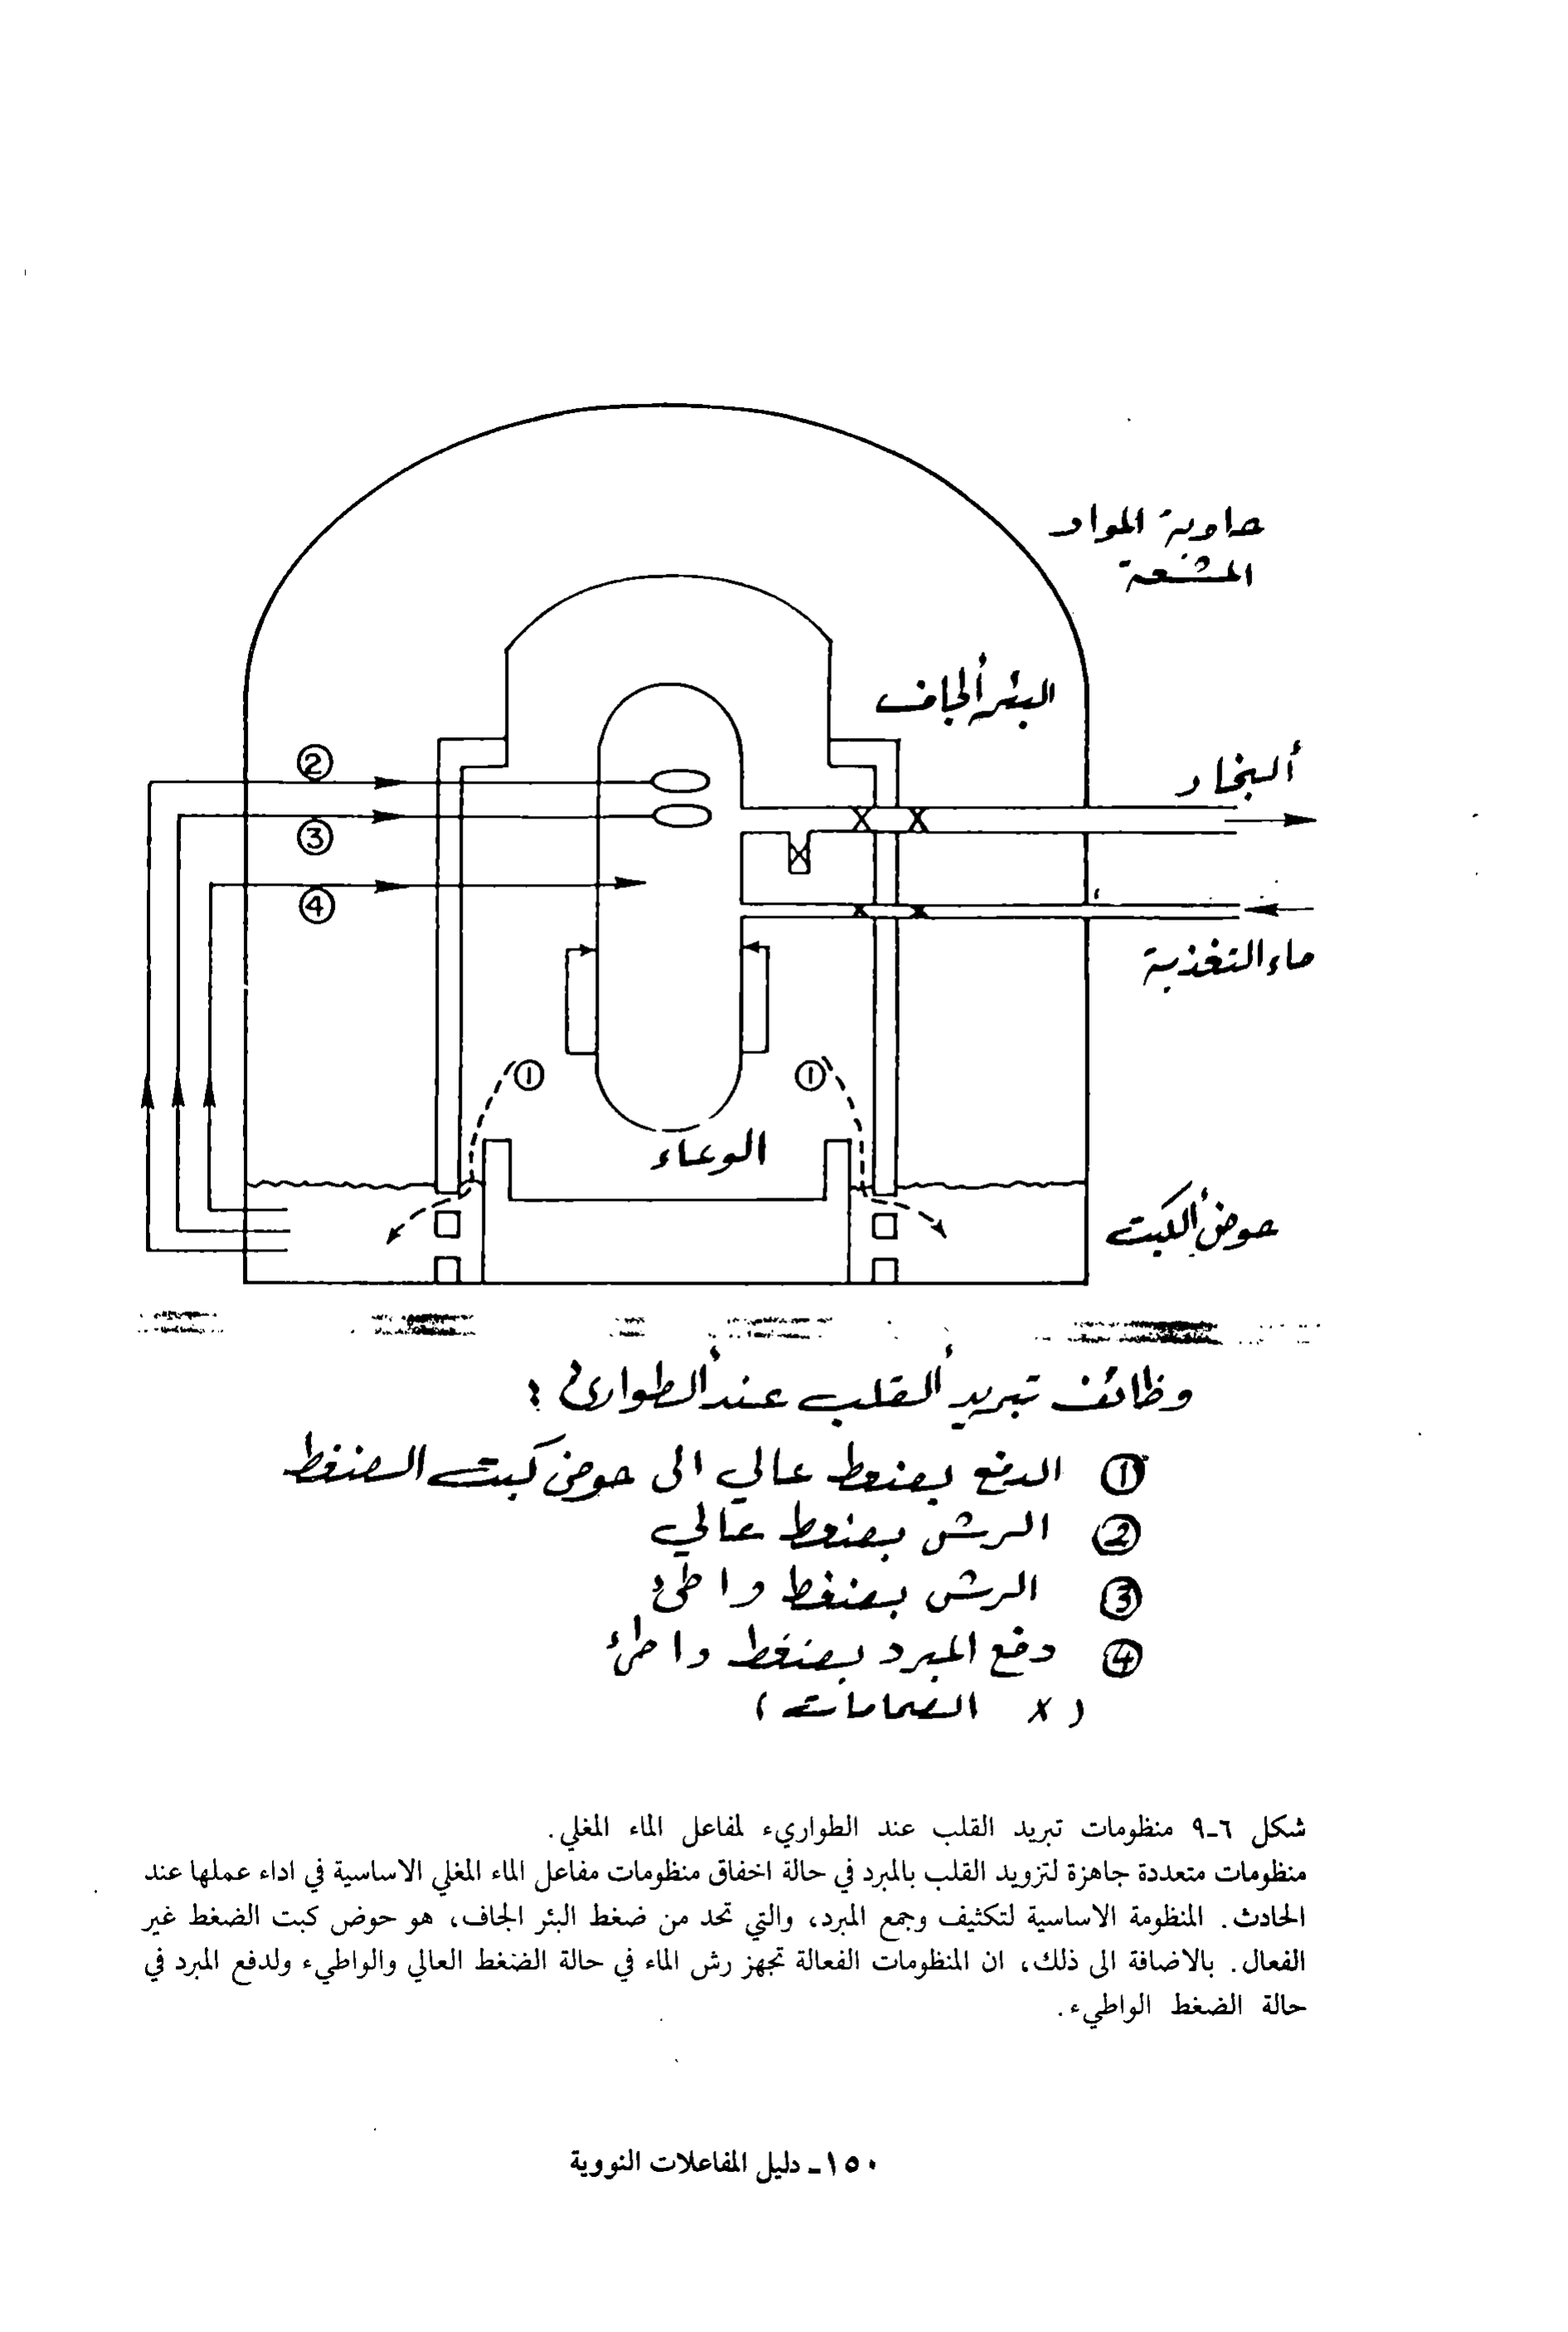 حاوية المواد
المشعة
البئر ألجاف
ألبخار
②
③
④
ماء التغذية
① ①
الوعاء
حوض ألكبت
وظائف تبريد ألقلب عند ألطوارئ :
① الدفع بضغط عالي الى حوض كبت الضغط
② الرش بضغط عالي
③ الرش بضغط واطئ
④ دفع المبرد بضغط واطئ
( x الصمامات )
شكل ٦-٩ منظومات تبريد القلب عند الطواريء لمفاعل الماء المغلي.
منظومات متعددة جاهزة لتزويد القلب بالمبرد في حالة اخفاق منظومات مفاعل الماء المغلي الاساسية في اداء عملها عند
الحادث. المنظومة الاساسية لتكثيف وجمع المبرد، والتي تحد من ضغط البئر الجاف، هو حوض كبت الضغط غير
الفعال. بالاضافة الى ذلك، ان المنظومات الفعالة تجهز رش الماء في حالة الضغط العالي والواطيء ولدفع المبرد في
حالة الضغط الواطيء.
١٥٠- دليل المفاعلات النووية